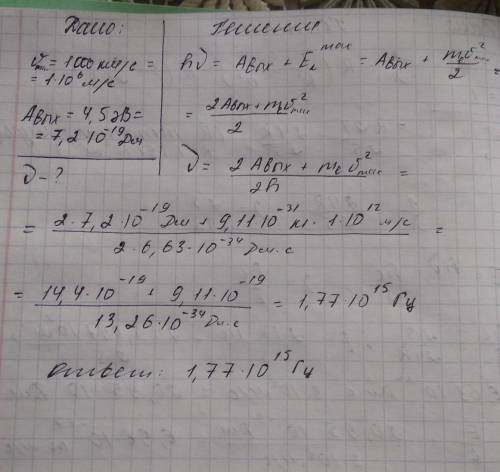 Дано:
υmax = 1000 км/с =
= 1·10⁶ м/с
Aвых = 4,5 эВ =
= 7,2·10⁻¹⁹ Дж
ν - ?
Решение
hν = Aвых + Eₖᵐᵃˣ = Aвых + mₑυ²max/2 =
= (2Aвых + mₑυ²max)/2
ν = (2Aвых + mₑυ²max)/2h =
= (2·7,2·10⁻¹⁹ Дж + 9,11·10⁻³¹ кг·1·10¹² м/с)/(2·6,63·10⁻³⁴ Дж·с) =
= (14,4·10⁻¹⁹ + 9,11·10⁻¹⁹)/(13,26·10⁻³⁴ Дж·с) = 1,77·10¹⁵ Гц
ответ: 1,77·10¹⁵ Гц